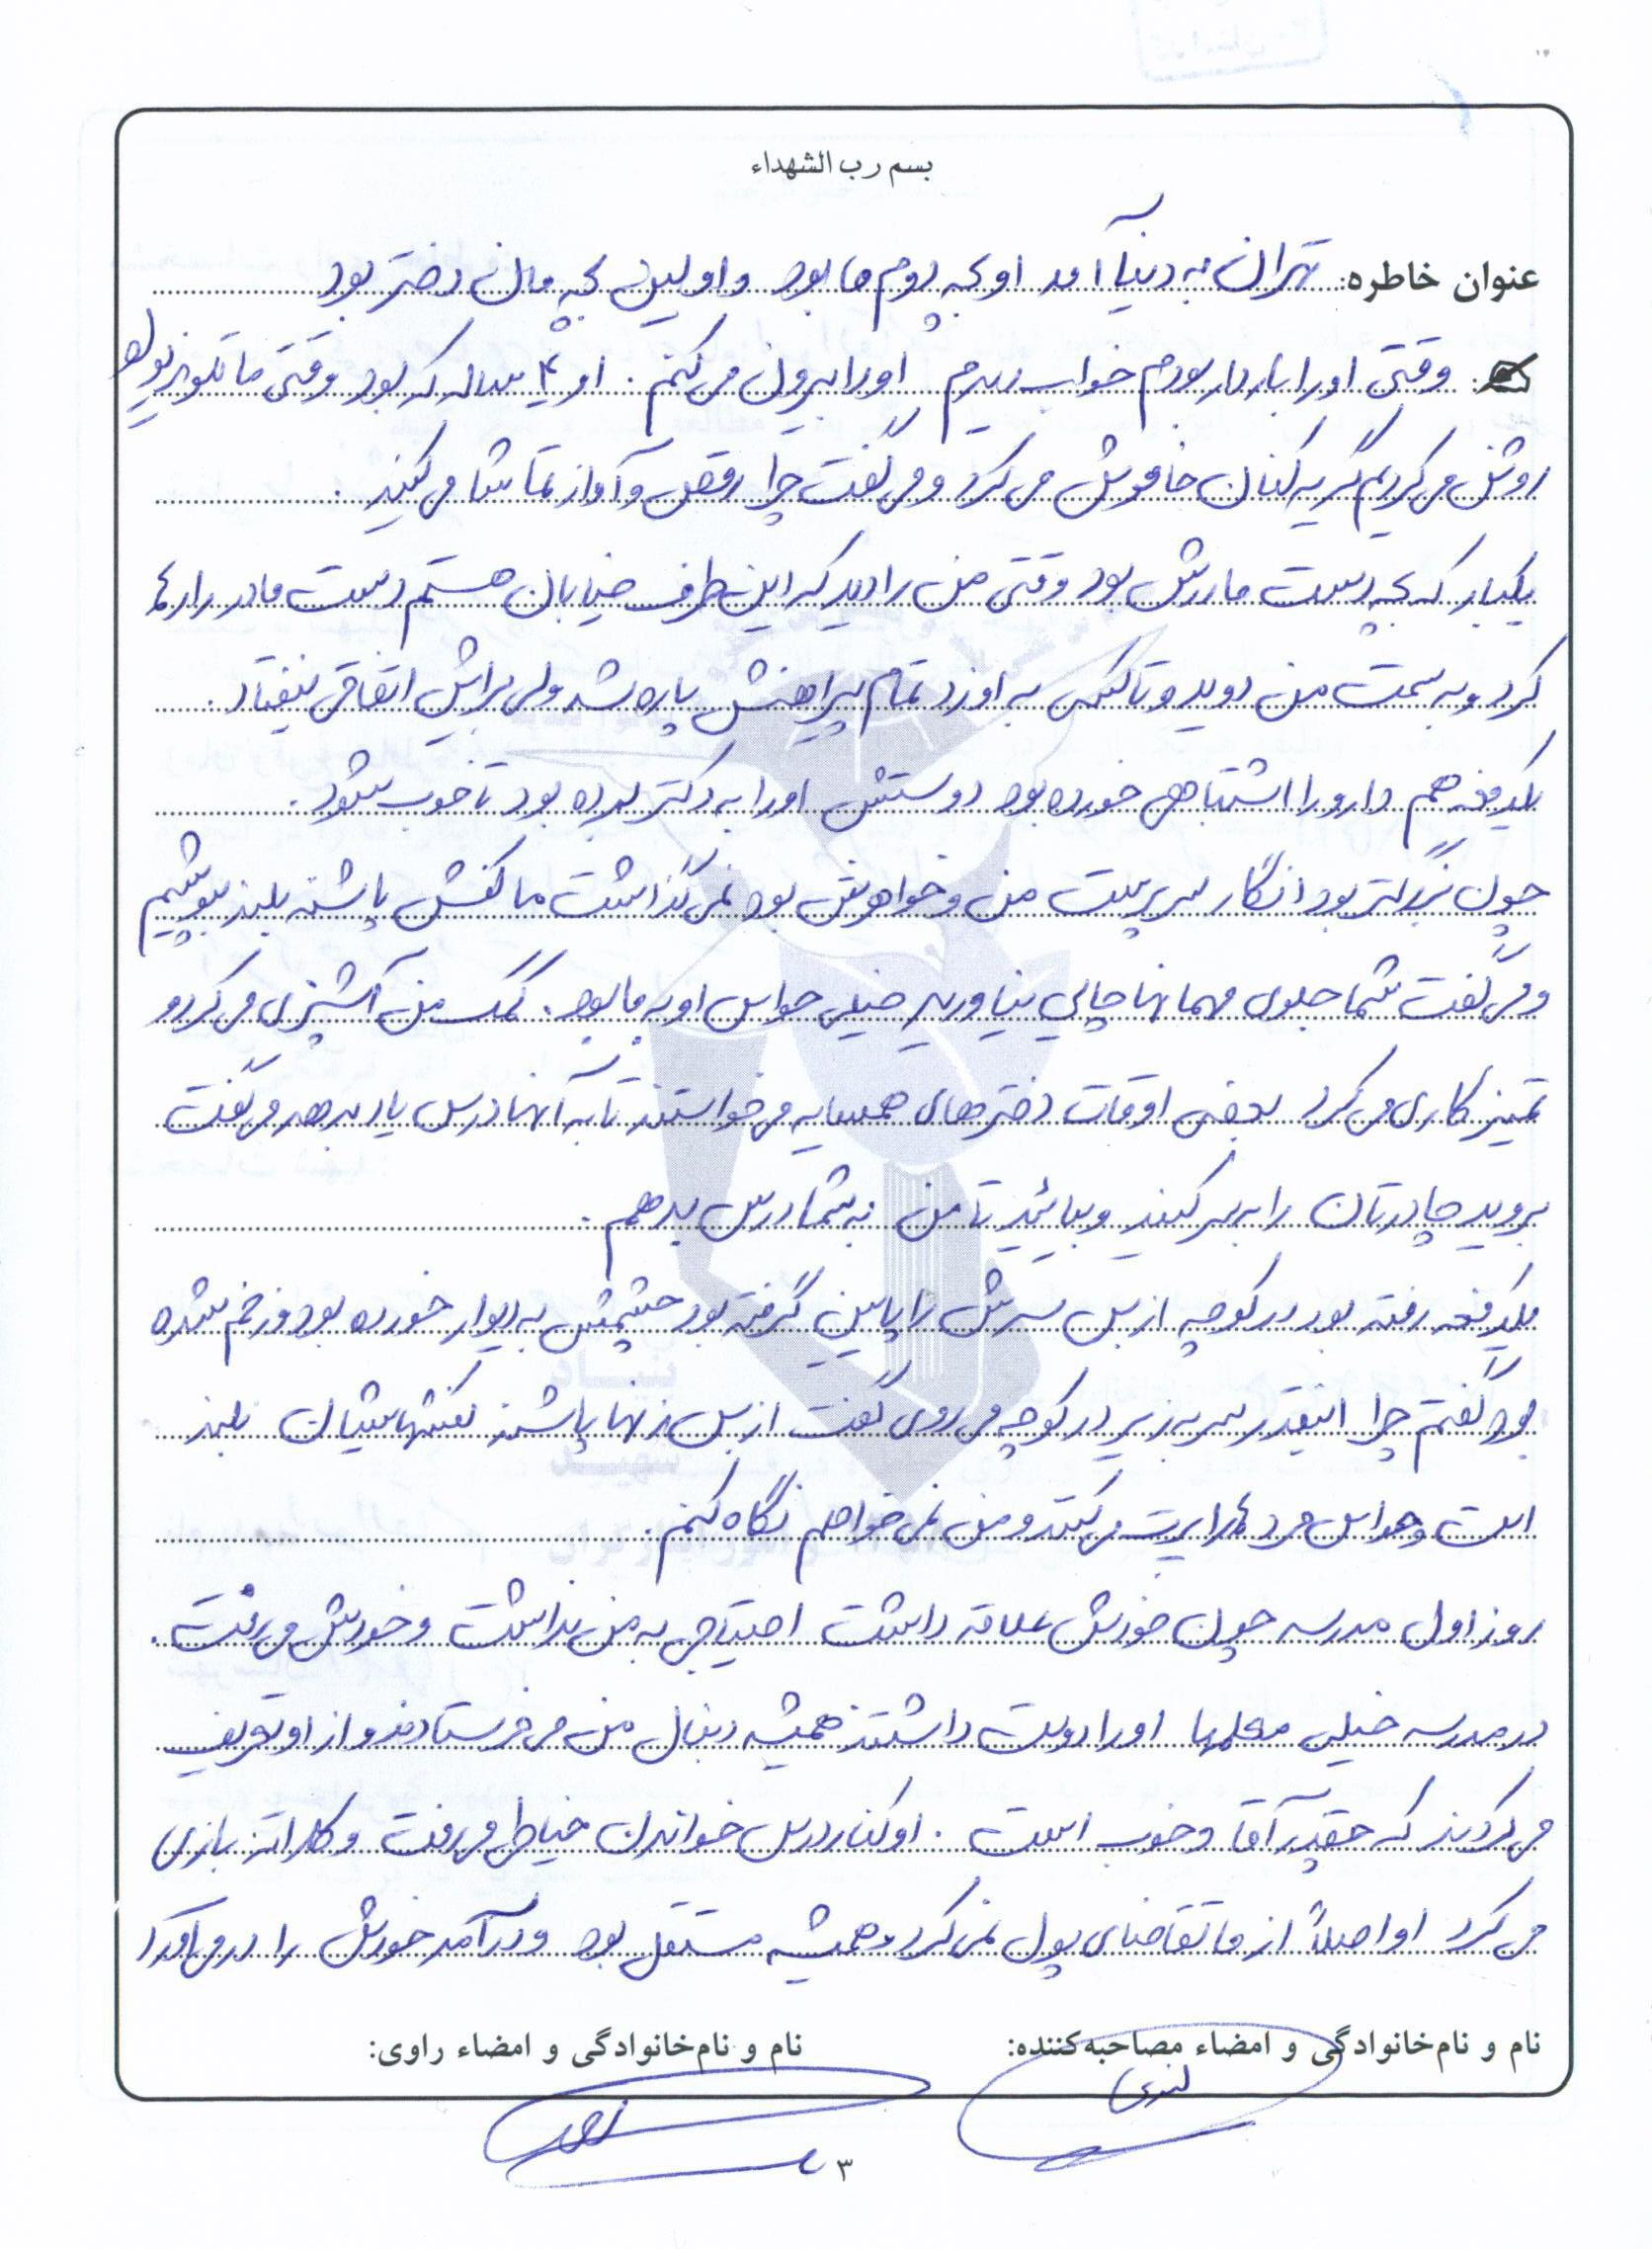 بسم رب الشهداء
عنوان خاطره: تهران به دنیا آمد او بچه دوم ما بود و اولین بچه مان دختر بود
وقتی او را باردار بودم خواب دیدم او را بیرون می کنم. او ۴ ساله که بود وقتی ما تلویزیون
روشن می کردیم گریه کنان خاموش می کرد و می گفت چرا رقص و آواز تماشا می کنید.
یکبار که بچه دست مادرش بود وقتی من را دید که این طرف خیابان هستم دست مادر را رها
کرد و به سمت من دوید و تاکسی به او زد تمام پیراهنش پاره شد ولی برایش اتفاقی نیفتاد.
یکدفعه هم دارو را اشتباهی خورده بود دوستش او را به دکتر برده بود تا خوب شود.
چون بزرگتر بود انگار سرپرست من و خواهرش بود نمی گذاشت ما کفش پاشنه بلند بپوشیم
و می گفت شما جلوی مهمانها چایی نیاورید خیلی حواس او به ما بود. کمک من آشپزی می کرد و
تمیز کاری می کرد بعضی اوقات دخترهای همسایه می خواستند تا به آنها درس یاد بدهد می گفت
بروید چادرتان را به سر کنید و بیائید تا من به شما درس بدهم.
یکدفعه رفته بود در کوچه از بس سرش را پایین گرفته بود چشمش به دیوار خورده بود و زخم شده
بود گفتم چرا اینقدر سر به زیر در کوچه می روی گفت از بس زنها پاشنه کفشهایشان بلند
است و حواس مرد را پرت می کنند و من نمی خواهم نگاه کنم.
روز اول مدرسه چون خودش علاقه داشت احتیاجی به من نداشت و خودش می رفت.
در مدرسه خیلی معلمها او را دوست داشتند همیشه دنبال من می فرستادند و از او تعریف
می کردند که چقدر آقا و خوب است. او کنار درس خواندن خیاطی می رفت و کاراته بازی
می کرد او اصلاً از ما تقاضای پول نمی کرد و همیشه مستقل بود و درآمد خودش را در می آورد
نام و نام‌خانوادگی و امضاء مصاحبه‌کننده:
نام و نام‌خانوادگی و امضاء راوی:
۳